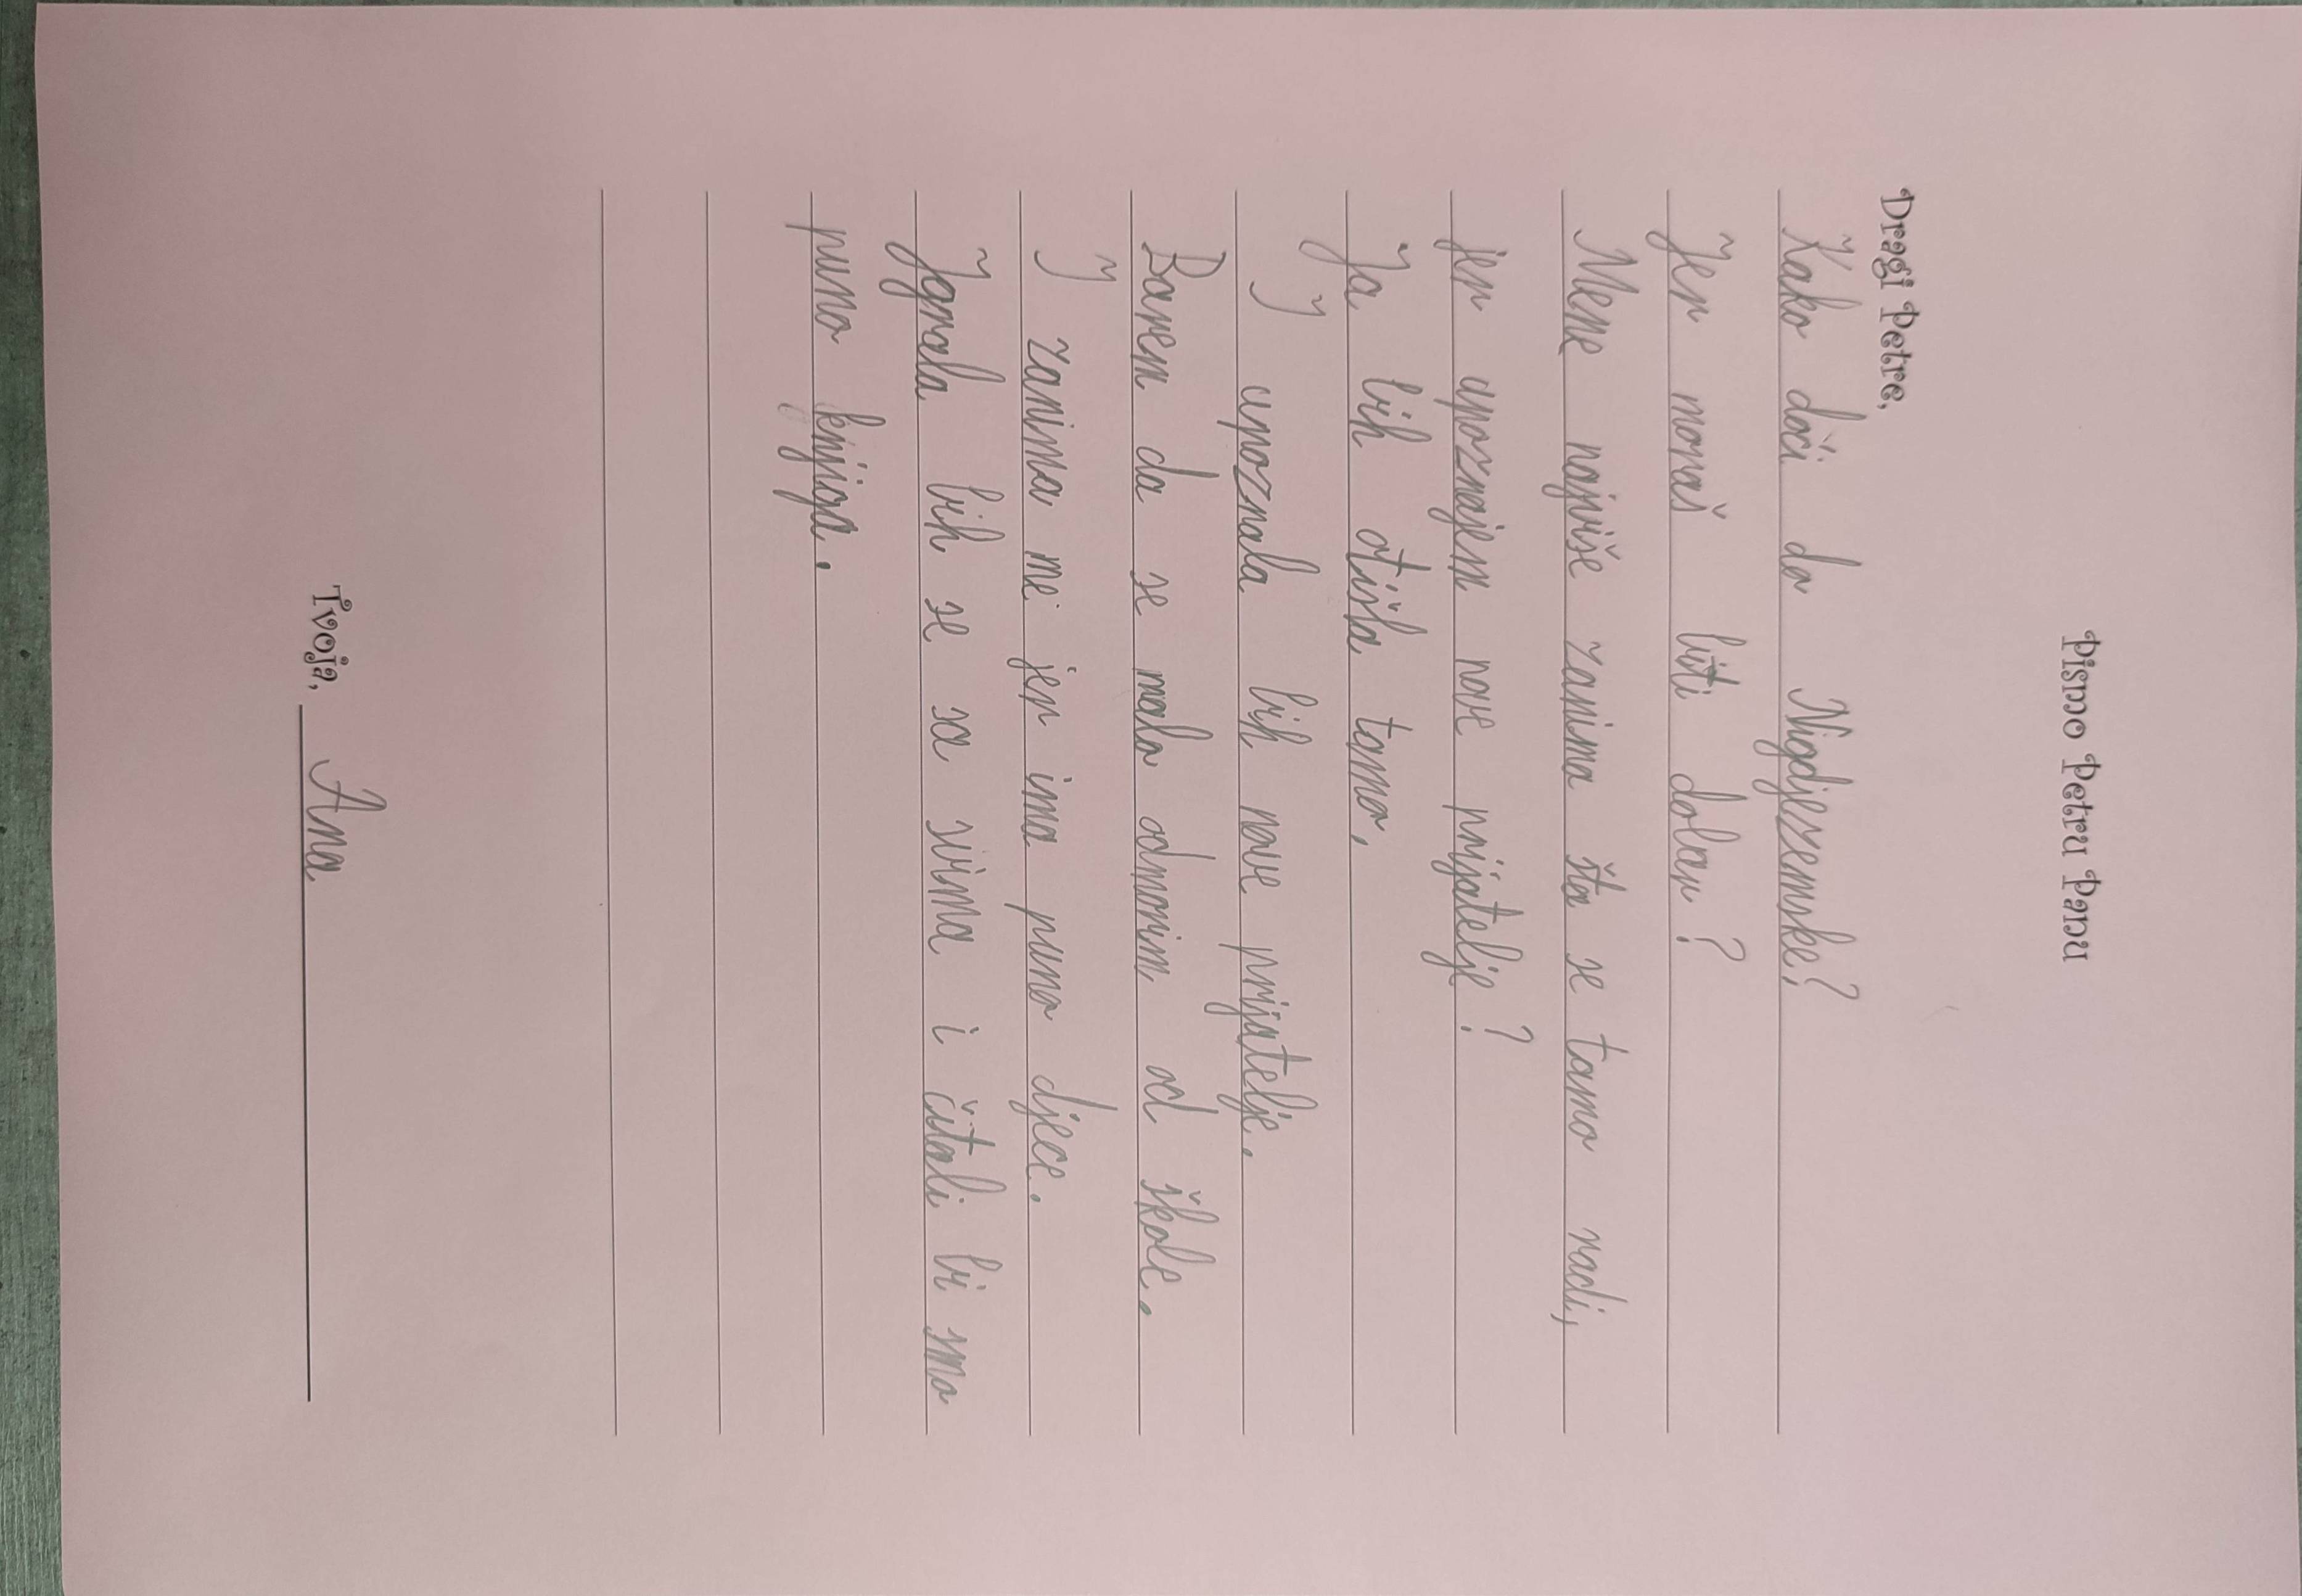 Pismo Petru Panu
Dragi Petre,
Kako doći do Nigdjezemske?
Jer moraš biti dobar?
Mene najviše zanima šta se tamo radi,
jer upoznajem nove prijatelje?
Ja bih otišla tamo.
I upoznala bih nove prijatelje.
Barem da se malo odmorim od škole.
I zanima me jer ima puno djece.
Igrala bih se sa svima i čitali bi smo
puno knjiga.
Tvoja, Ana